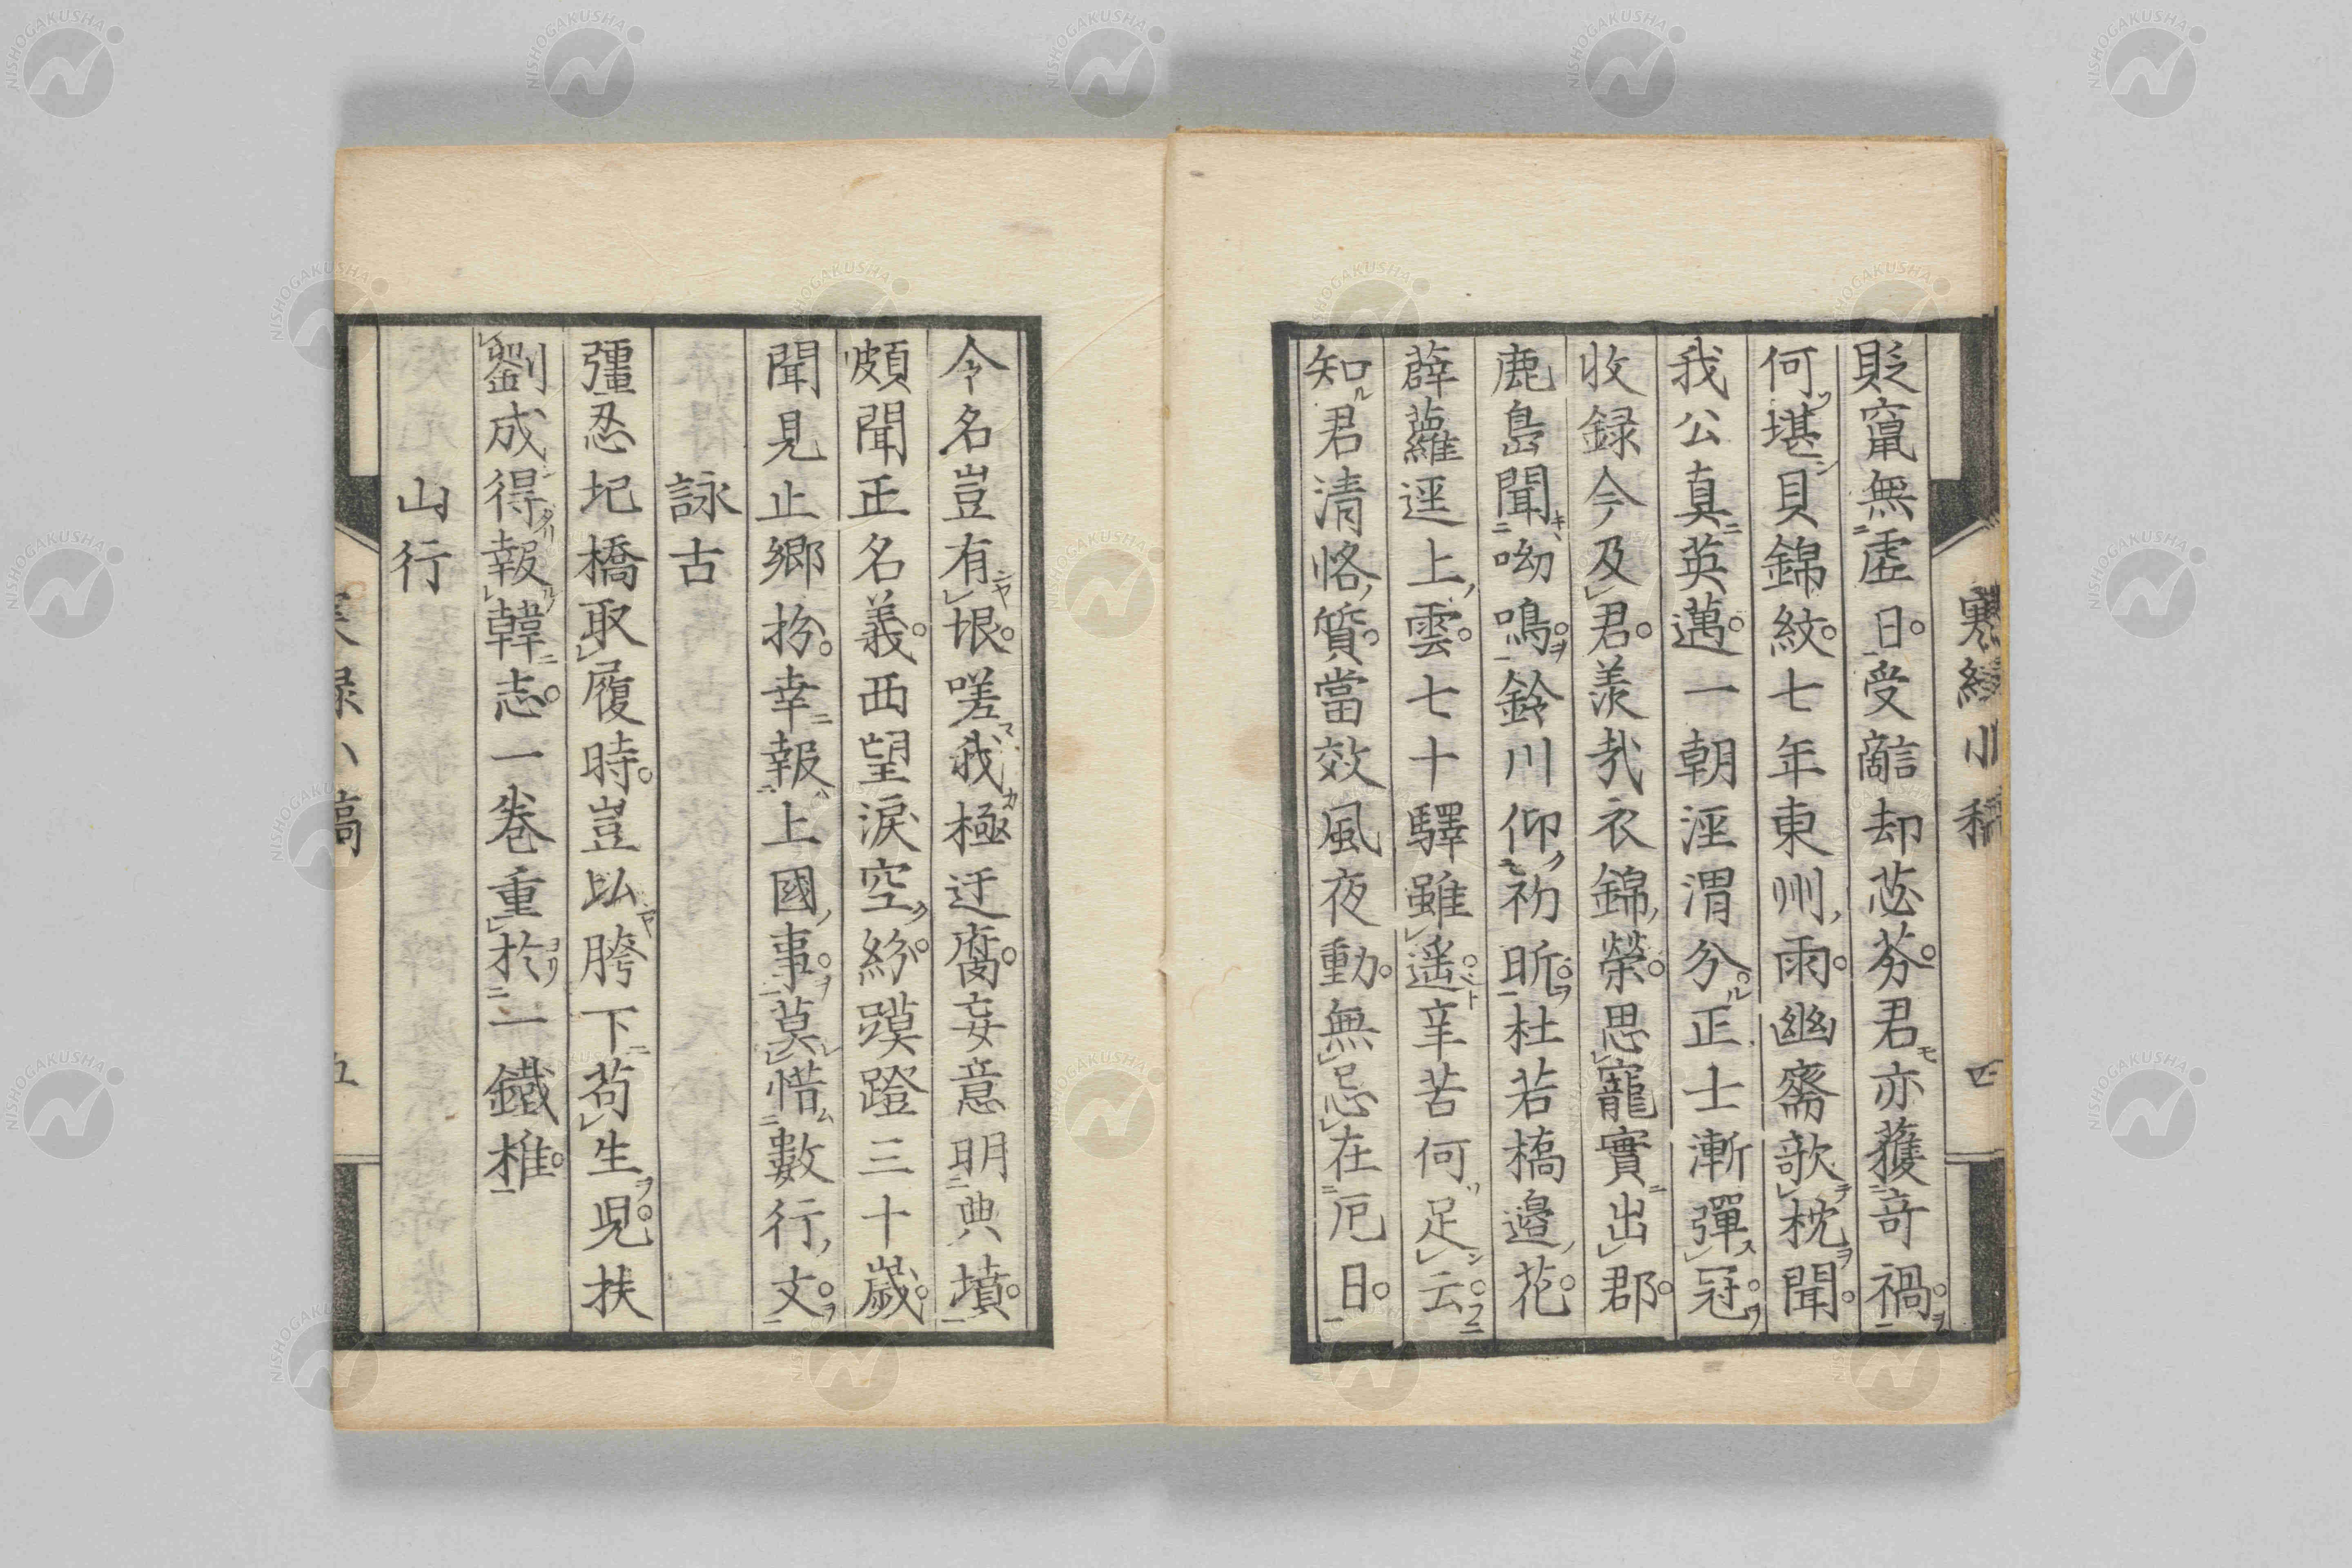 貶竄無虚日受謫却苾芬君亦蒦奇禍
何堪貝錦紋七年東州雨幽齋欹枕聞
我公真英邁一朝涇渭分正士漸彈冠
收録今及君羨哉衣錦榮思寵實出郡
鹿島聞呦鳴鈴川仰初昕杜若橋邉花
薜蘿逕上雲七十驛雖遥辛苦何足云
知君清恪質當效風夜動無忌在厄日
寒緑小稿
四
令名豈有垠嗟我極迂腐妄意明典墳
頗聞正名義西望淚空紛蹼蹬三十歳
聞見止鄉枌幸報上國事莫惜數行文
詠古
彊忍圯橋取履時豈以胯下苟生児扶
劉成得報韓志一卷重於一鐵椎
山行
五